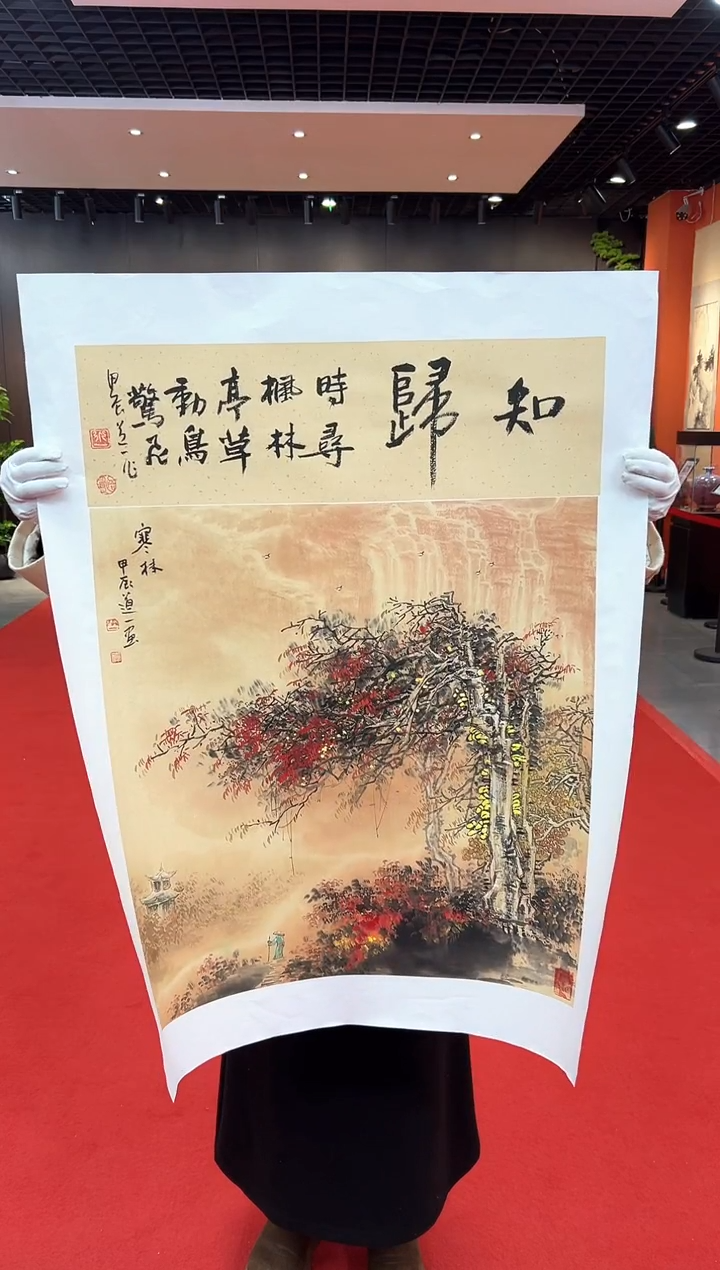 知歸
時尋
楓林
亭草
動鳥
驚飛
甲辰道一作
寒林
甲辰道一畫